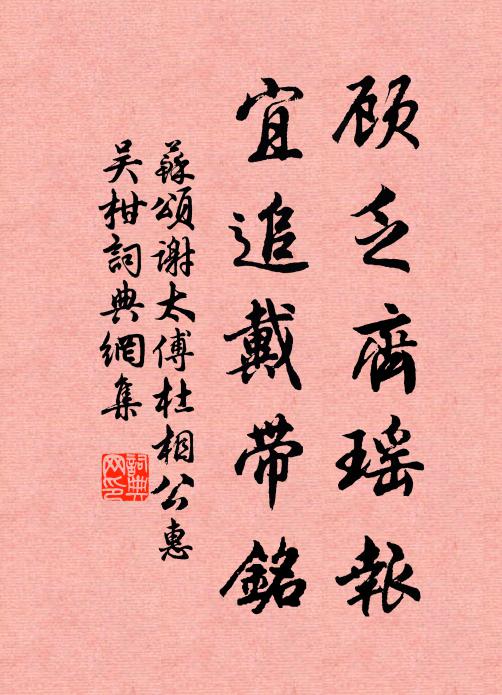 顾乏齊瑶報
宜追戴带銘
蘇頌謝太傅杜相公惠
吴柑詞典網集
詞典
网印